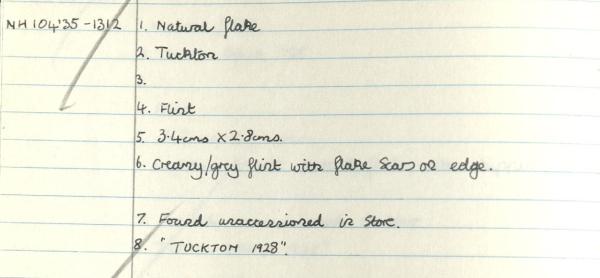 NH 104'35-1312 1. Natural flake
2. Tuckton
3.
4. Flint
5. 3.4cms X 2.8cms.
6. Creamy/grey flint with flake scars on edge.
7. Found unaccessioned in store.
8. "TUCKTON 1928".